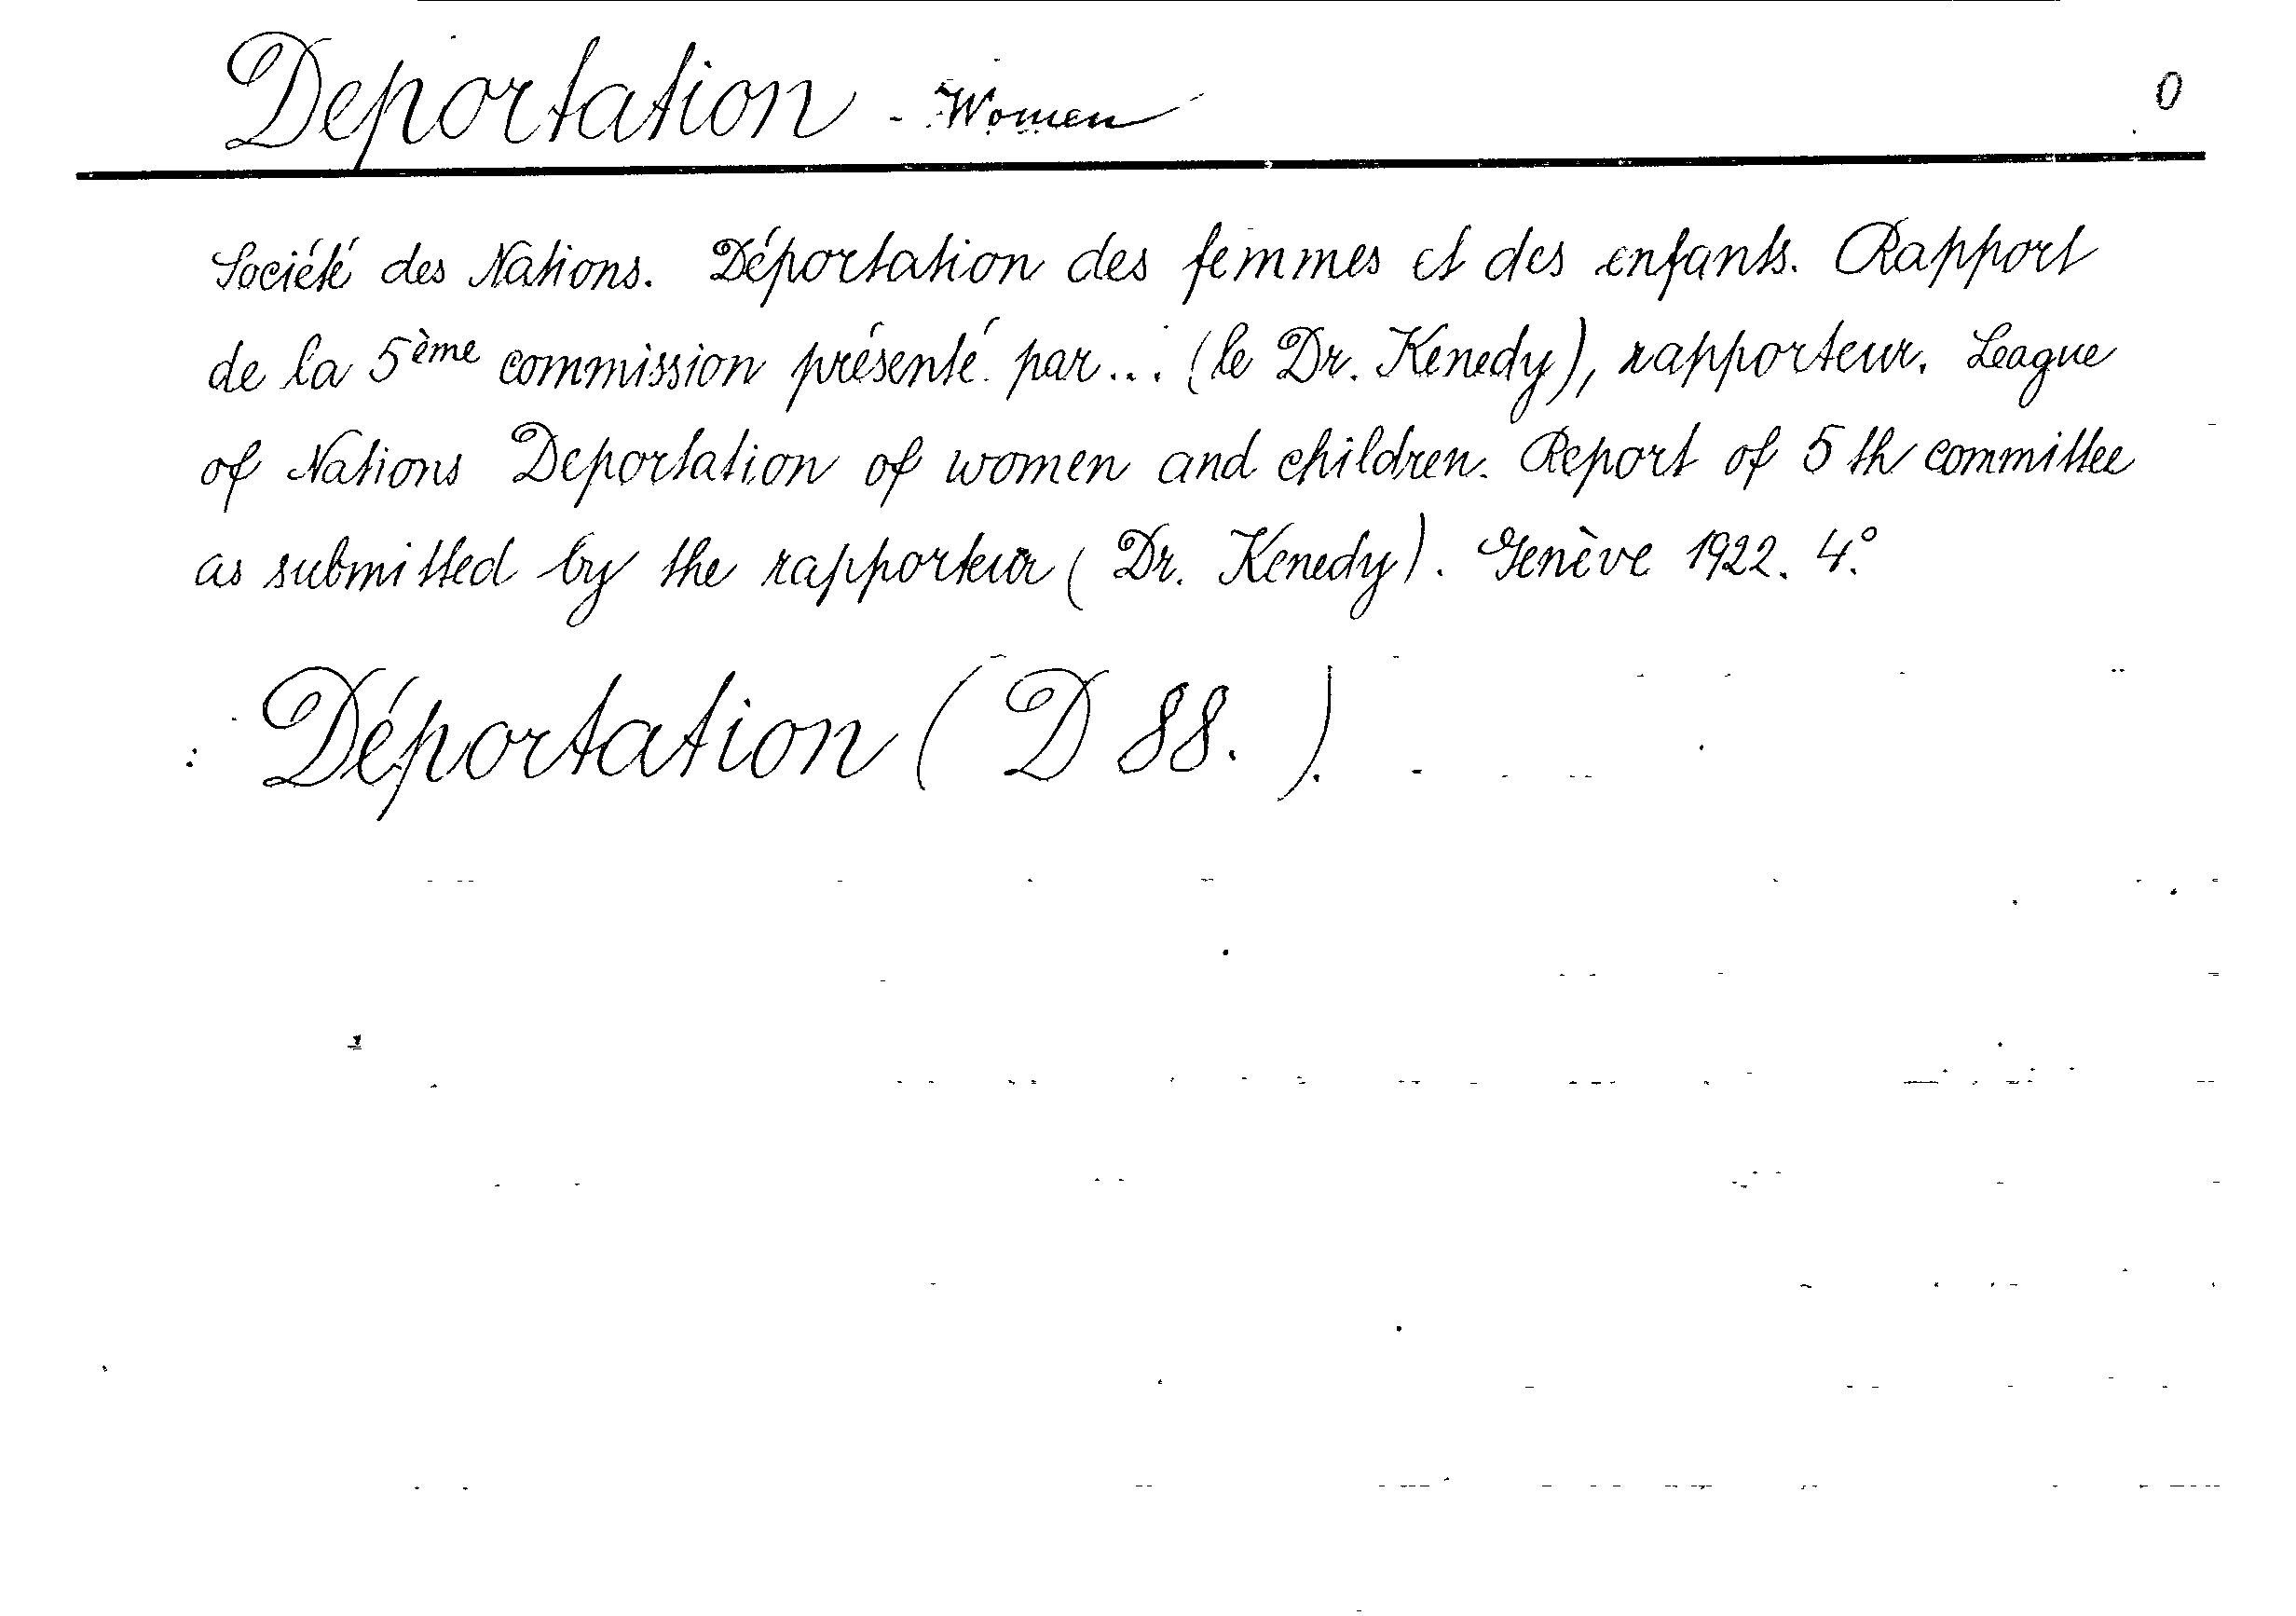 Deportation - Women 0
Société des Nations. Déportation des femmes et des enfants. Rapport
de la 5ème commission présenté par... (le Dr. Kenedy), rapporteur. League
of Nations Deportation of women and children. Report of 5th committee
as submitted by the rapporteur (Dr. Kenedy). Genève 1922. 4°.
Déportation (D 88.).